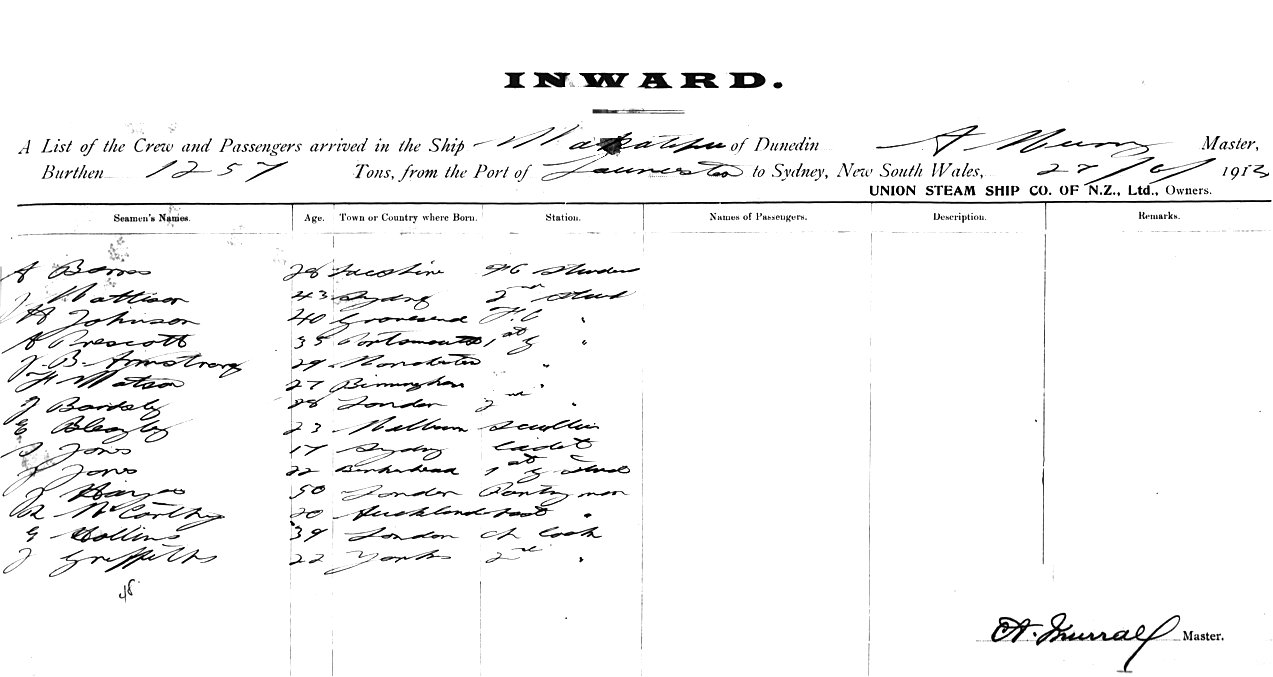 INWARD.
A List of the Crew and Passengers arrived in the Ship Wakatipu of Dunedin A Master,
Burthen 1257 Tons, from the Port of Launceston to Sydney, New South Wales, 27/6/1912
UNION STEAM SHIP CO. OF N.Z., Ltd., Owners.
Seamen's Names. Age. Town or Country where Born. Station. Names of Passengers. Description. Remarks.
A 28
J Mattison 43 Sydney 2nd Stwd
H Johnson 40 Gravesend F.C "
A Prescott 35 Portsmouth 1st "
J. B. Armstrong 29 Manchester "
F Watson 27 Birmingham "
J Bardsley 28 London 2nd "
E 23 Melbourne Scullion
S Jones 17 Sydney Cadet
J Jones 22 Birkenhead 1st Stwd
J Hayes 50 London Pantry man
R McCarthy 20 Auckland asst "
G Hollins 39 London Ch Cook
J Griffiths 22 Yorks 2nd "
48
A. Murrall Master.